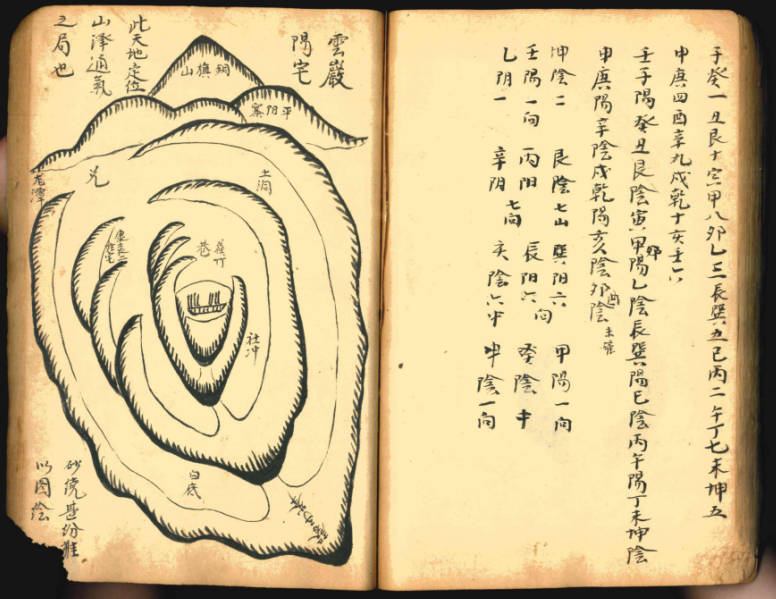 子癸一丑艮十寅甲八卯乙三辰巽五巳丙二午丁七未坤五
申庚四酉辛九戌乾十亥壬六
壬子陽癸丑艮陰寅甲卯陽乙陰辰巽陽巳陰丙午陽丁未坤陰
申庚陽辛陰戌乾陽亥陰卯酉陰
坤陰二 艮陰七山 巽阳六 甲陽一向
壬陽一向 丙阳七向 辰阳六向 癸陰
乙阴一 辛阴 亥陰六 陰一向
雲巖
陽宅
此天地定位
山澤通氣
之局也
銅旗山
平阳寨
土洞
兑
老潭
巷
社冲
白底
砂繞甚紛難
以图绘